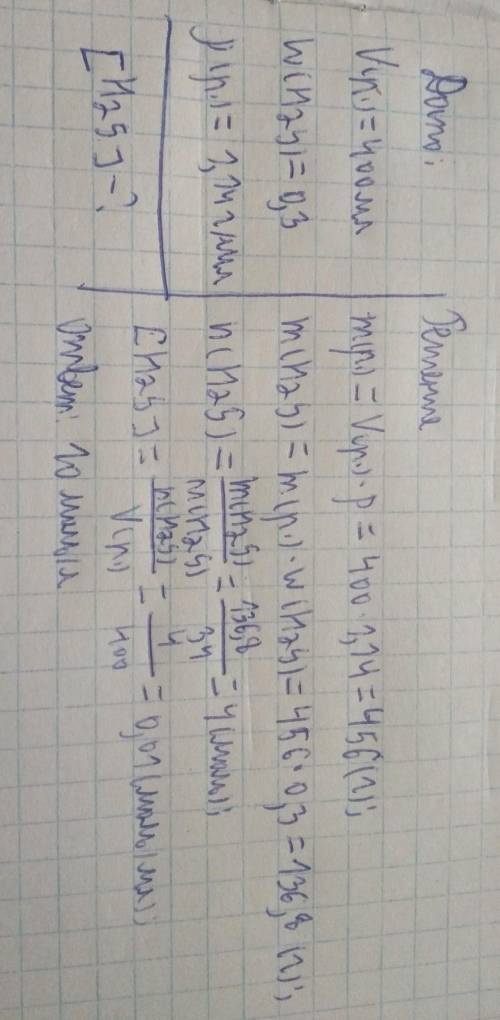 Дано:
V(р.) = 400 мл
w(H2S) = 0,3
ρ(р.) = 1,14 г/мл
[H2S] - ?
Решение
m(р.) = V(р.) · ρ = 400 · 1,14 = 456 (г);
m(H2S) = m(р.) · w(H2S) = 456 · 0,3 = 136,8 (г);
n(H2S) = m(H2S) / M(H2S) = 136,8 / 34 = 4 (моль);
[H2S] = n(H2S) / V(р.) = 4 / 400 = 0,01 (моль/мл);
Ответ: 10 моль/л